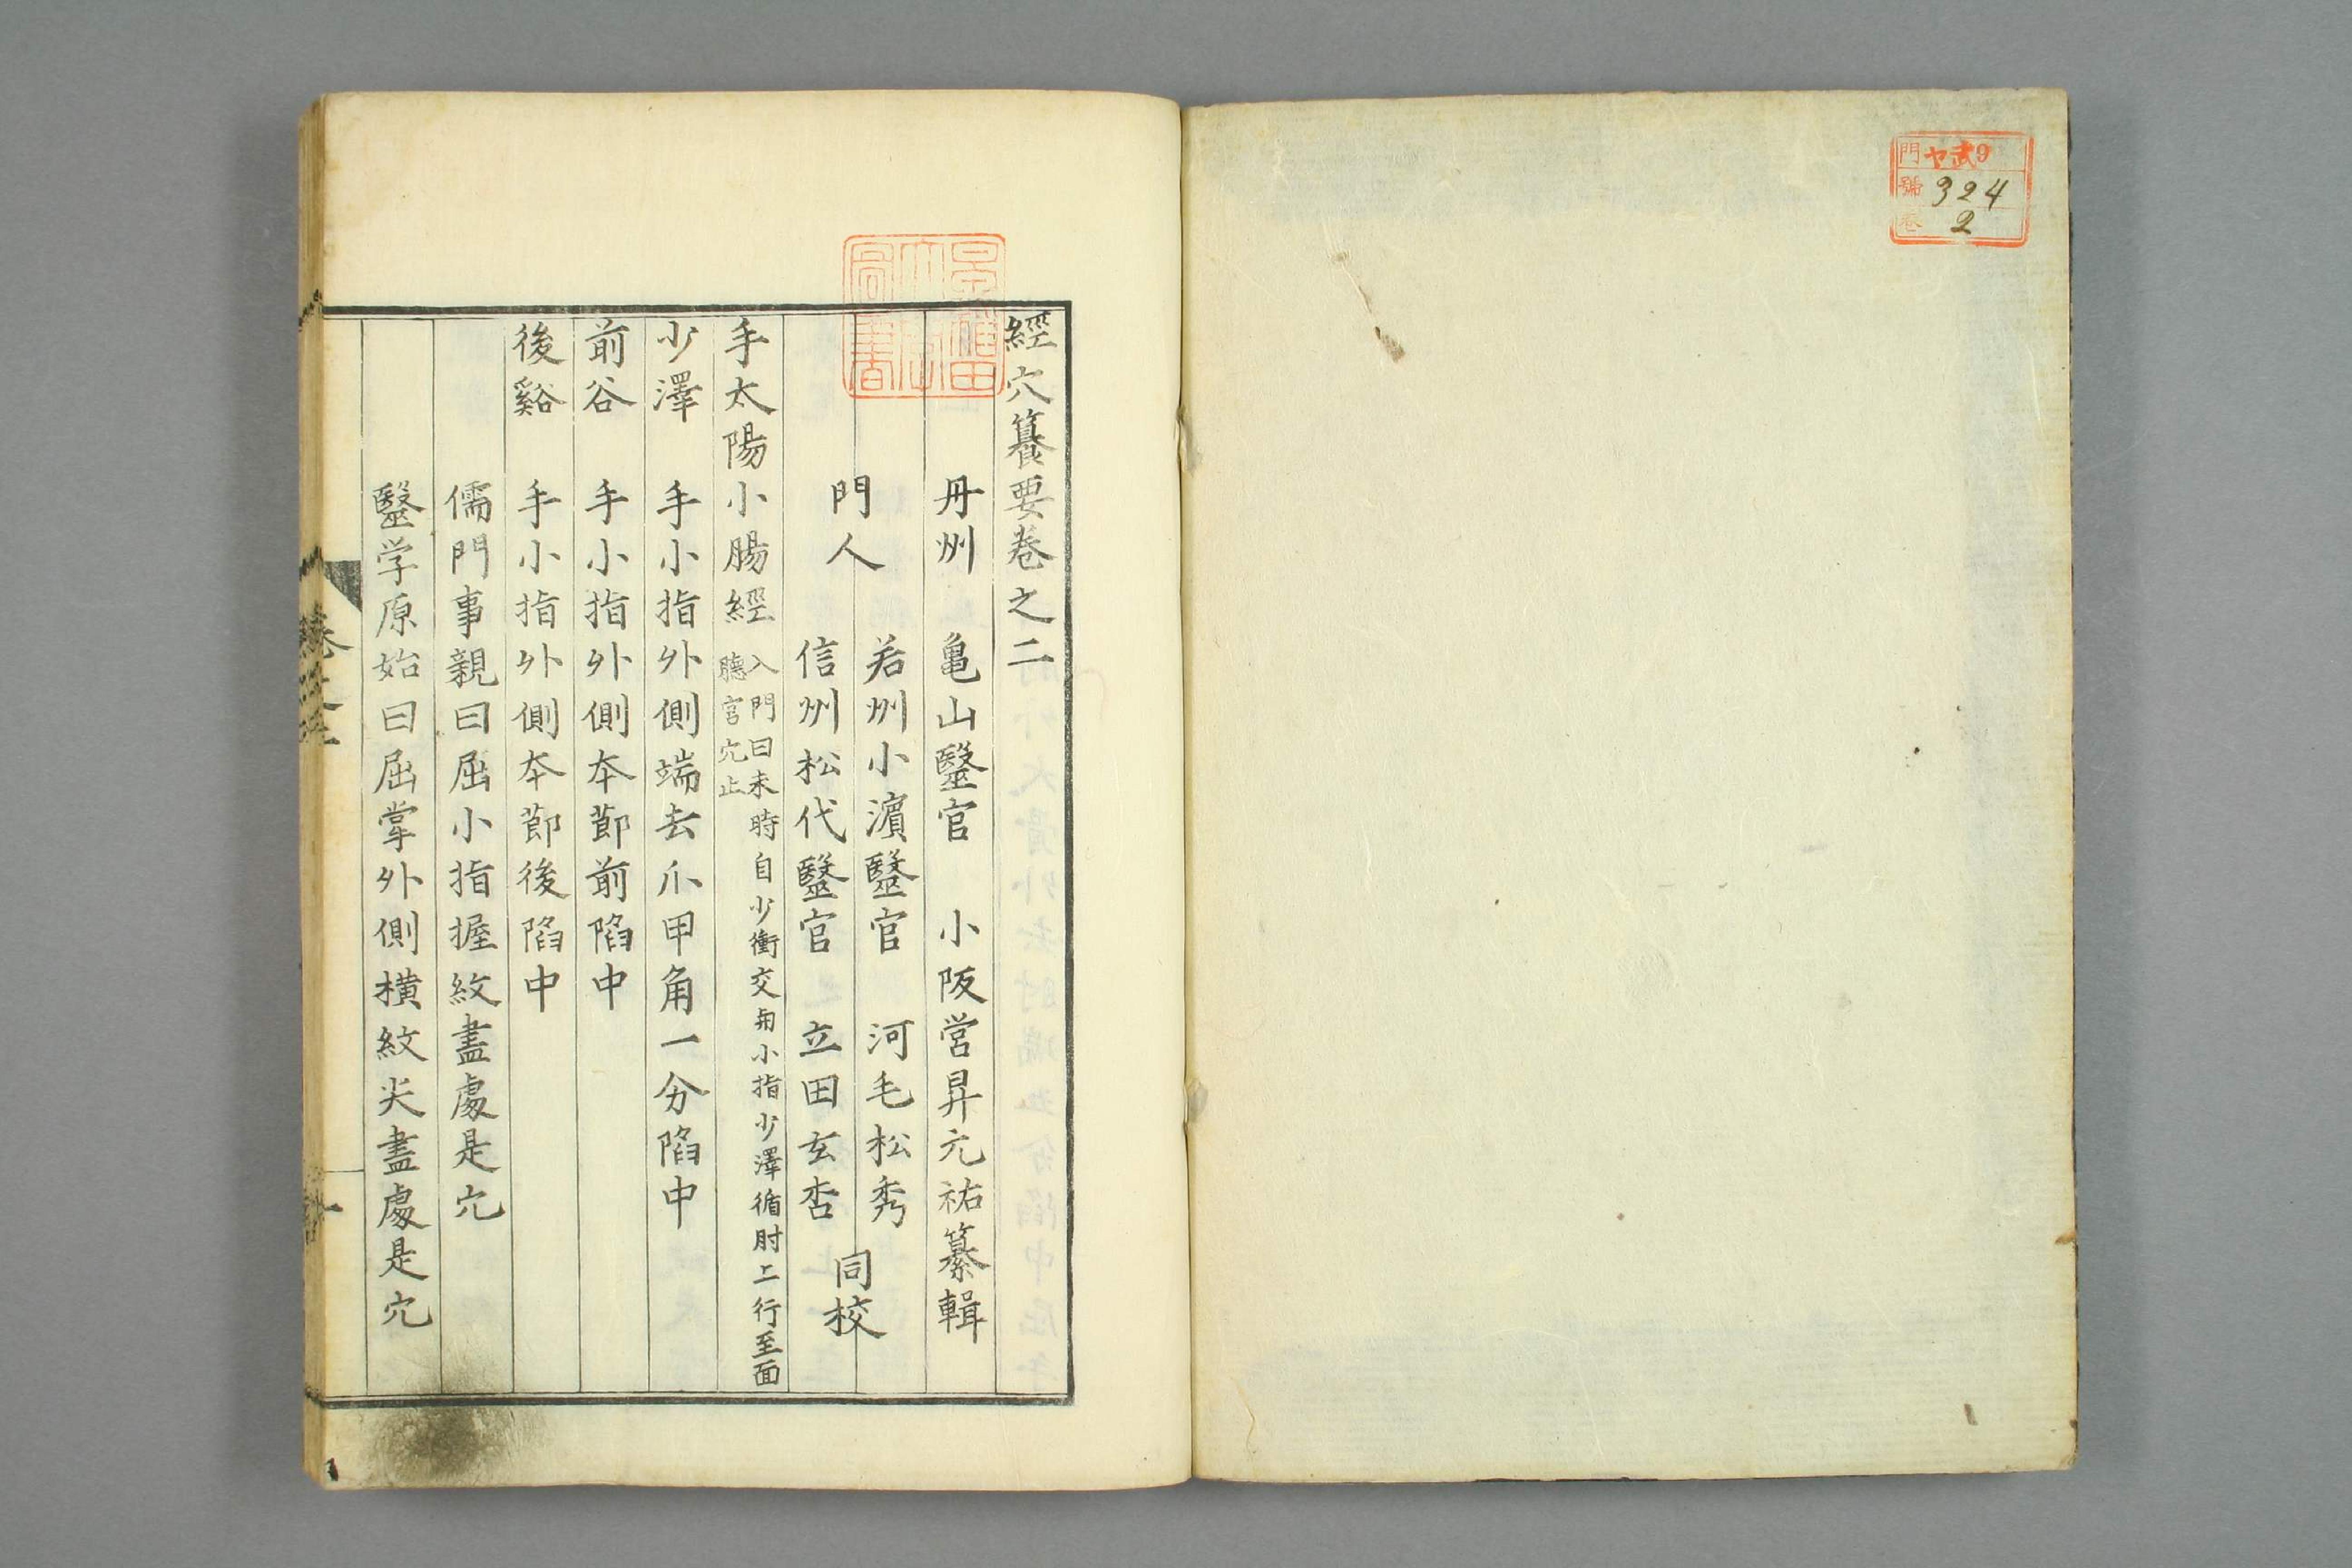 門 ヤ武9
號 324
卷 2
經穴纂要卷之二
丹州 亀山毉官 小阪営昇元祐纂輯
門人 若州小濵毉官 河毛松秀
信州松代毉官 立田玄杏 同校
手太陽小腸經 入門曰未時自少衝交與小指少澤循肘上行至面
聽宮穴止
少澤 手小指外側端去爪甲角一分陷中
前谷 手小指外側本節前陷中
後谿 手小指外側本節後陷中
儒門事親曰屈小指握紋盡處是穴
毉学原始曰屈掌外側橫紋尖盡處是穴